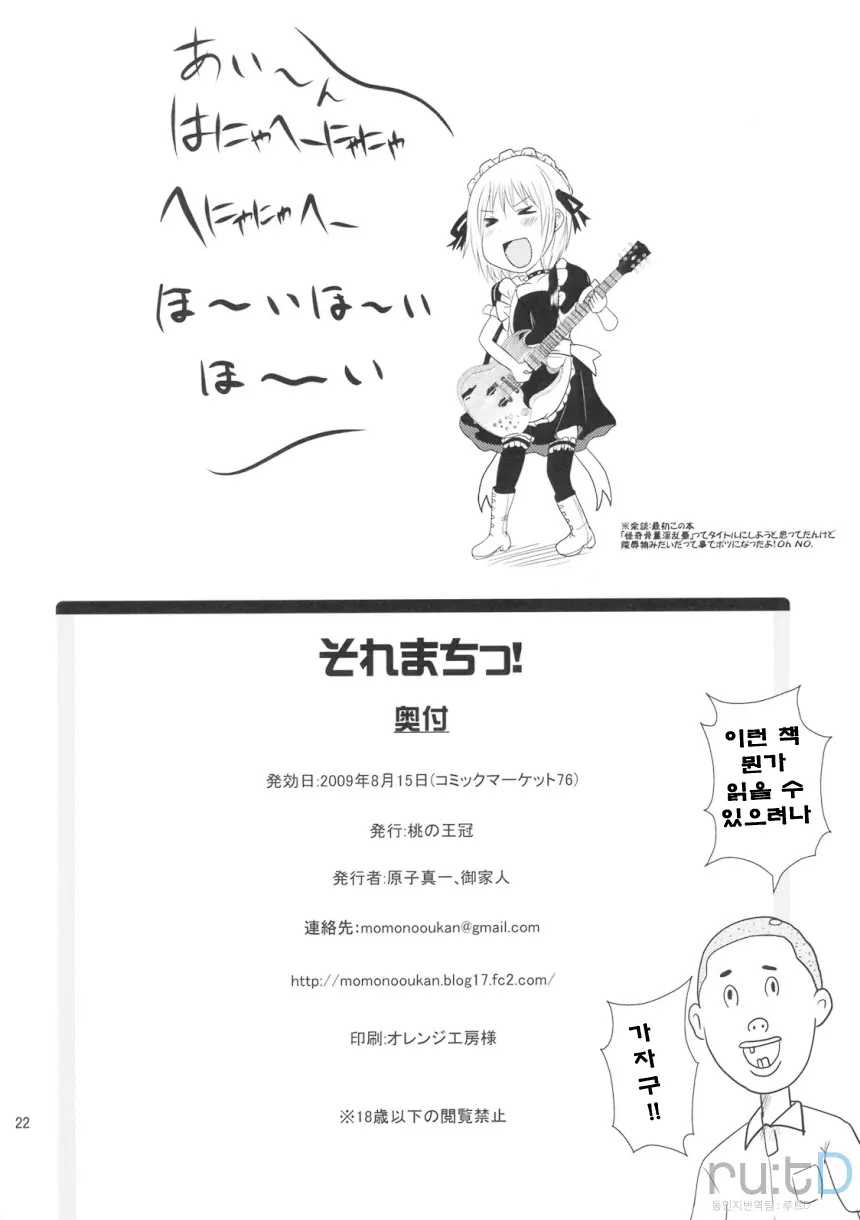 あい～ん
はにゃへーにゃにゃ
へにゃにゃへー
ほ～いほ～い
ほ～い
※余談:最初この本
「怪奇骨董淫乱壷」ってタイトルにしようと思ってたんけど
陵辱物みたいだって事でボツになっつたよ!Oh NO.
それまちっ!
奥付
発効日:2009年8月15日(コミックマーケット76)
発行:桃の王冠
発行者:原子真一、御家人
連絡先:momonooukan@gmail.com
http://momonooukan.blog17.fc2.com/
印刷:オレンジ工房様
※18歳以下の閲覧禁止
이런 책
뭔가
읽을 수
있으려나
가
자
구
!!
22
ru:tD
동인지번역팀 : 루트D